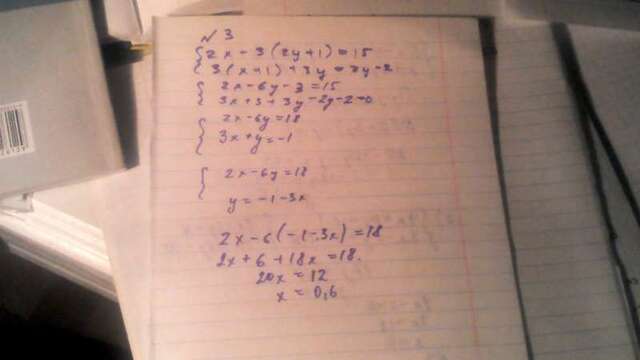 № 3
{ 2x - 3(2y+1) = 15
3(x+1) + 3y = 2y - 2
{ 2x - 6y - 3 = 15
3x + 3 + 3y - 2y - 2 = 0
{ 2x - 6y = 18
3x + y = -1
{ 2x - 6y = 18
y = -1 - 3x
2x - 6(-1 - 3x) = 18
2x + 6 + 18x = 18.
20x = 12
x = 0,6